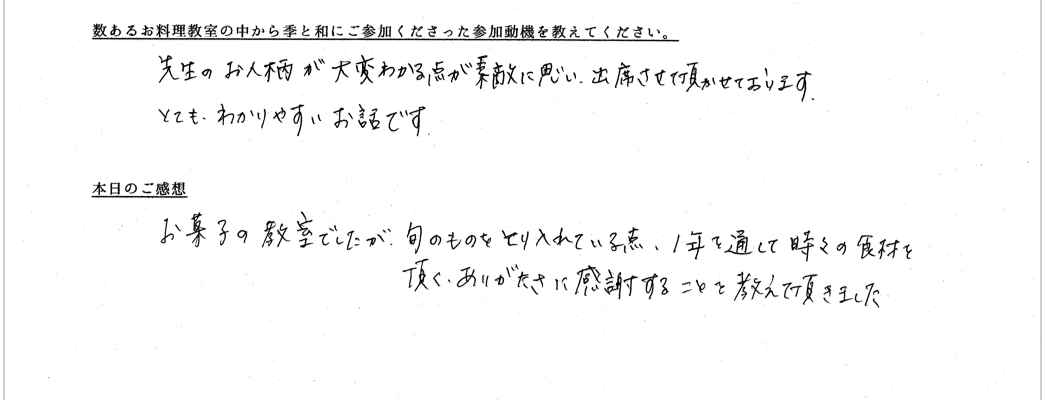 数あるお料理教室の中から季と和にご参加くださった参加動機を教えてください。
先生のお人柄が大変わかる点が素敵に思い、出席させて頂かせております。
とても、わかりやすいお話です。
本日のご感想
お菓子の教室でしたが、旬のものをとり入れている点、1年を通して時々の食材を
頂く、ありがたさに感謝することを教えて頂きました